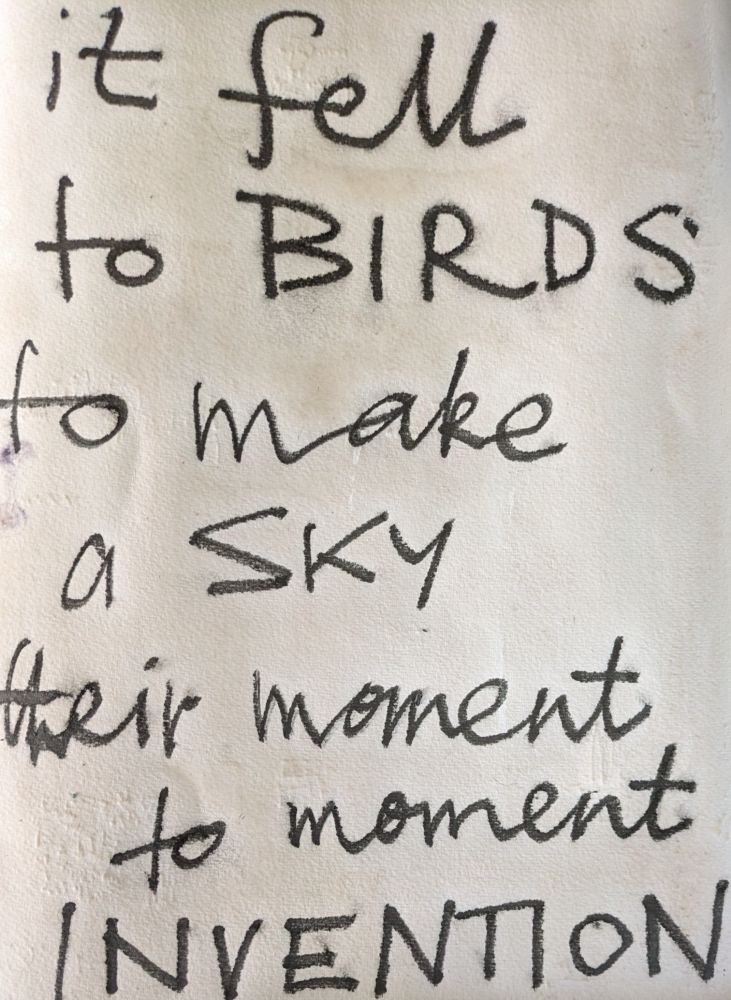 it fell
to BIRDS
to make
a SKY
their moment
to moment
INVENTION